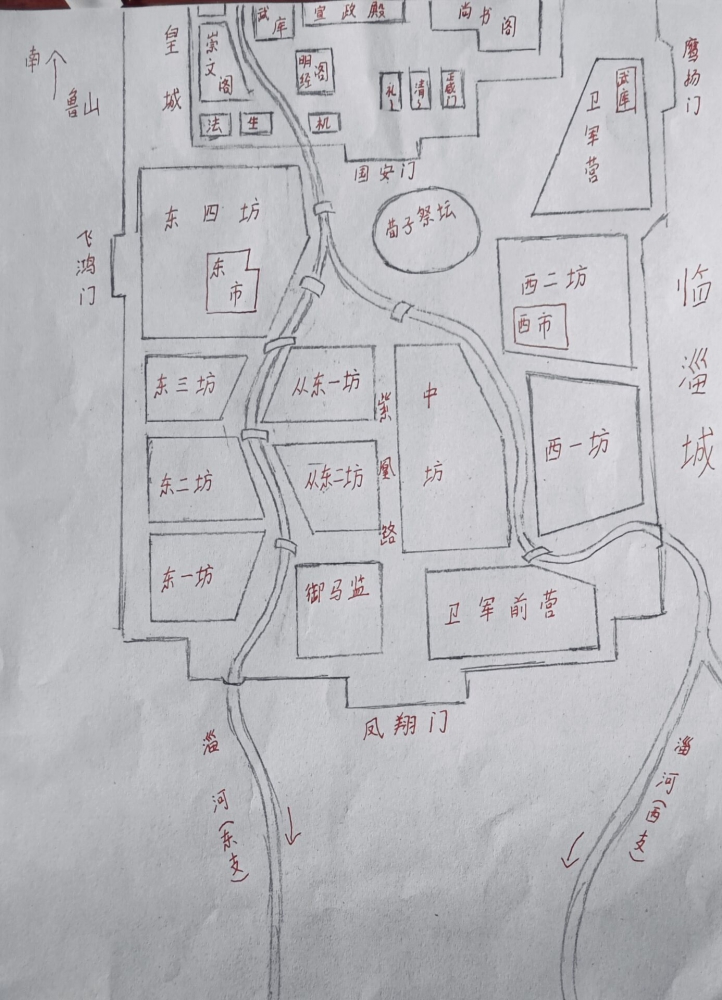 武库
宣政殿
尚书阁
皇城
崇文阁
明经阁
礼
清
南
鲁山
鹰扬门
武库
卫军营
法
生
机
国安门
东四坊
荀子祭坛
飞鸿门
东市
西二坊
西市
临淄城
东三坊
从东一坊
紫凰路
中坊
西一坊
东二坊
从东二坊
东一坊
御马监
卫军前营
凤翔门
淄河(东支)
淄河(西支)